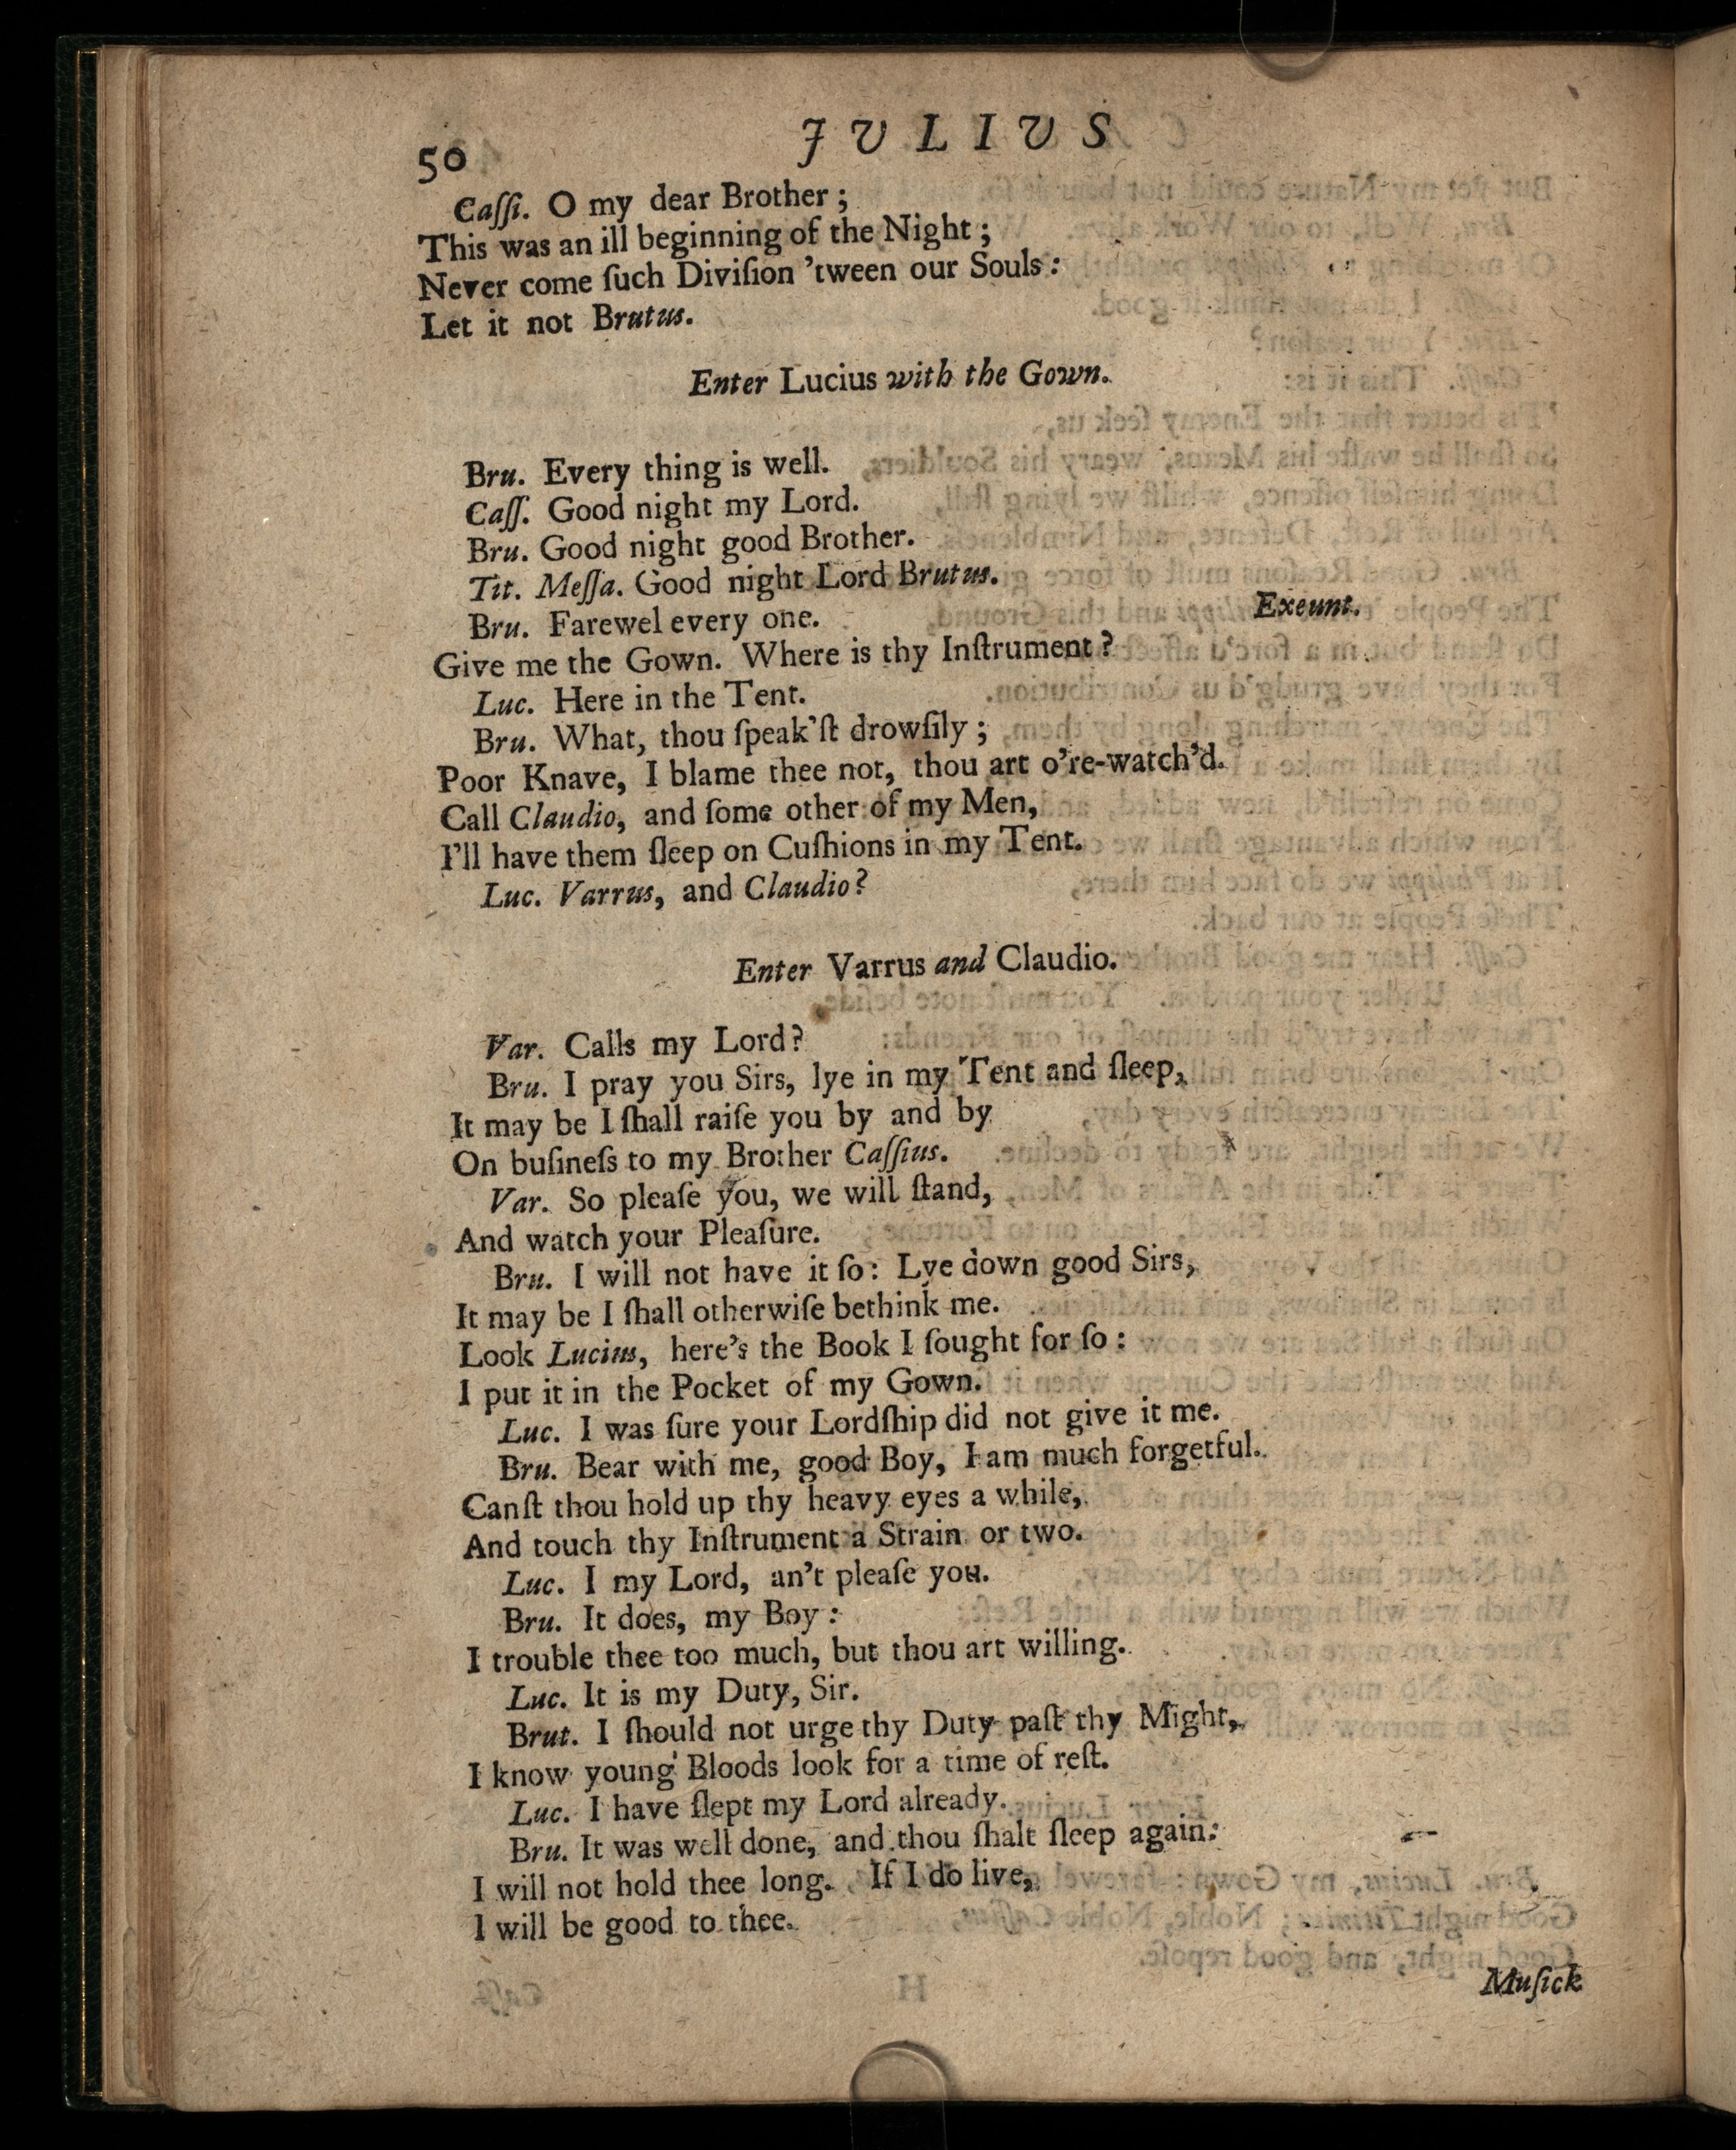 50
JULIUS
Caſſi. O my dear Brother;
This was an ill beginning of the Night;
Never come ſuch Diviſion 'tween our Souls:
Let it not Brutus.
Enter Lucius with the Gown.
Bru. Every thing is well.
Caſſ. Good night my Lord.
Bru. Good night good Brother.
Tit. Meſſa. Good night Lord Brutus.
Bru. Farewel every one. Exeunt.
Give me the Gown. Where is thy Inſtrument?
Luc. Here in the Tent.
Bru. What, thou ſpeak'ſt drowſily;
Poor Knave, I blame thee not, thou art o're-watch'd.
Call Claudio, and ſome other of my Men,
I'll have them ſleep on Cuſhions in my Tent.
Luc. Varrus, and Claudio?
Enter Varrus and Claudio.
Var. Calls my Lord?
Bru. I pray you Sirs, lye in my Tent and ſleep,
It may be I ſhall raiſe you by and by
On buſineſs to my Brother Caſſius.
Var. So pleaſe you, we will ſtand,
And watch your Pleaſure.
Bru. I will not have it ſo: Lye down good Sirs,
It may be I ſhall otherwiſe bethink me.
Look Lucius, here's the Book I ſought for ſo:
I put it in the Pocket of my Gown.
Luc. I was ſure your Lordſhip did not give it me.
Bru. Bear with me, good Boy, I am much forgetful.
Canſt thou hold up thy heavy eyes a while,
And touch thy Inſtrument a Strain or two.
Luc. I my Lord, an't pleaſe you.
Bru. It does, my Boy:
I trouble thee too much, but thou art willing.
Luc. It is my Duty, Sir.
Brut. I ſhould not urge thy Duty paſt thy Might,
I know young Bloods look for a time of reſt.
Luc. I have ſlept my Lord already.
Bru. It was well done, and thou ſhalt ſleep again:
I will not hold thee long. If I do live,
I will be good to thee.
Muſick